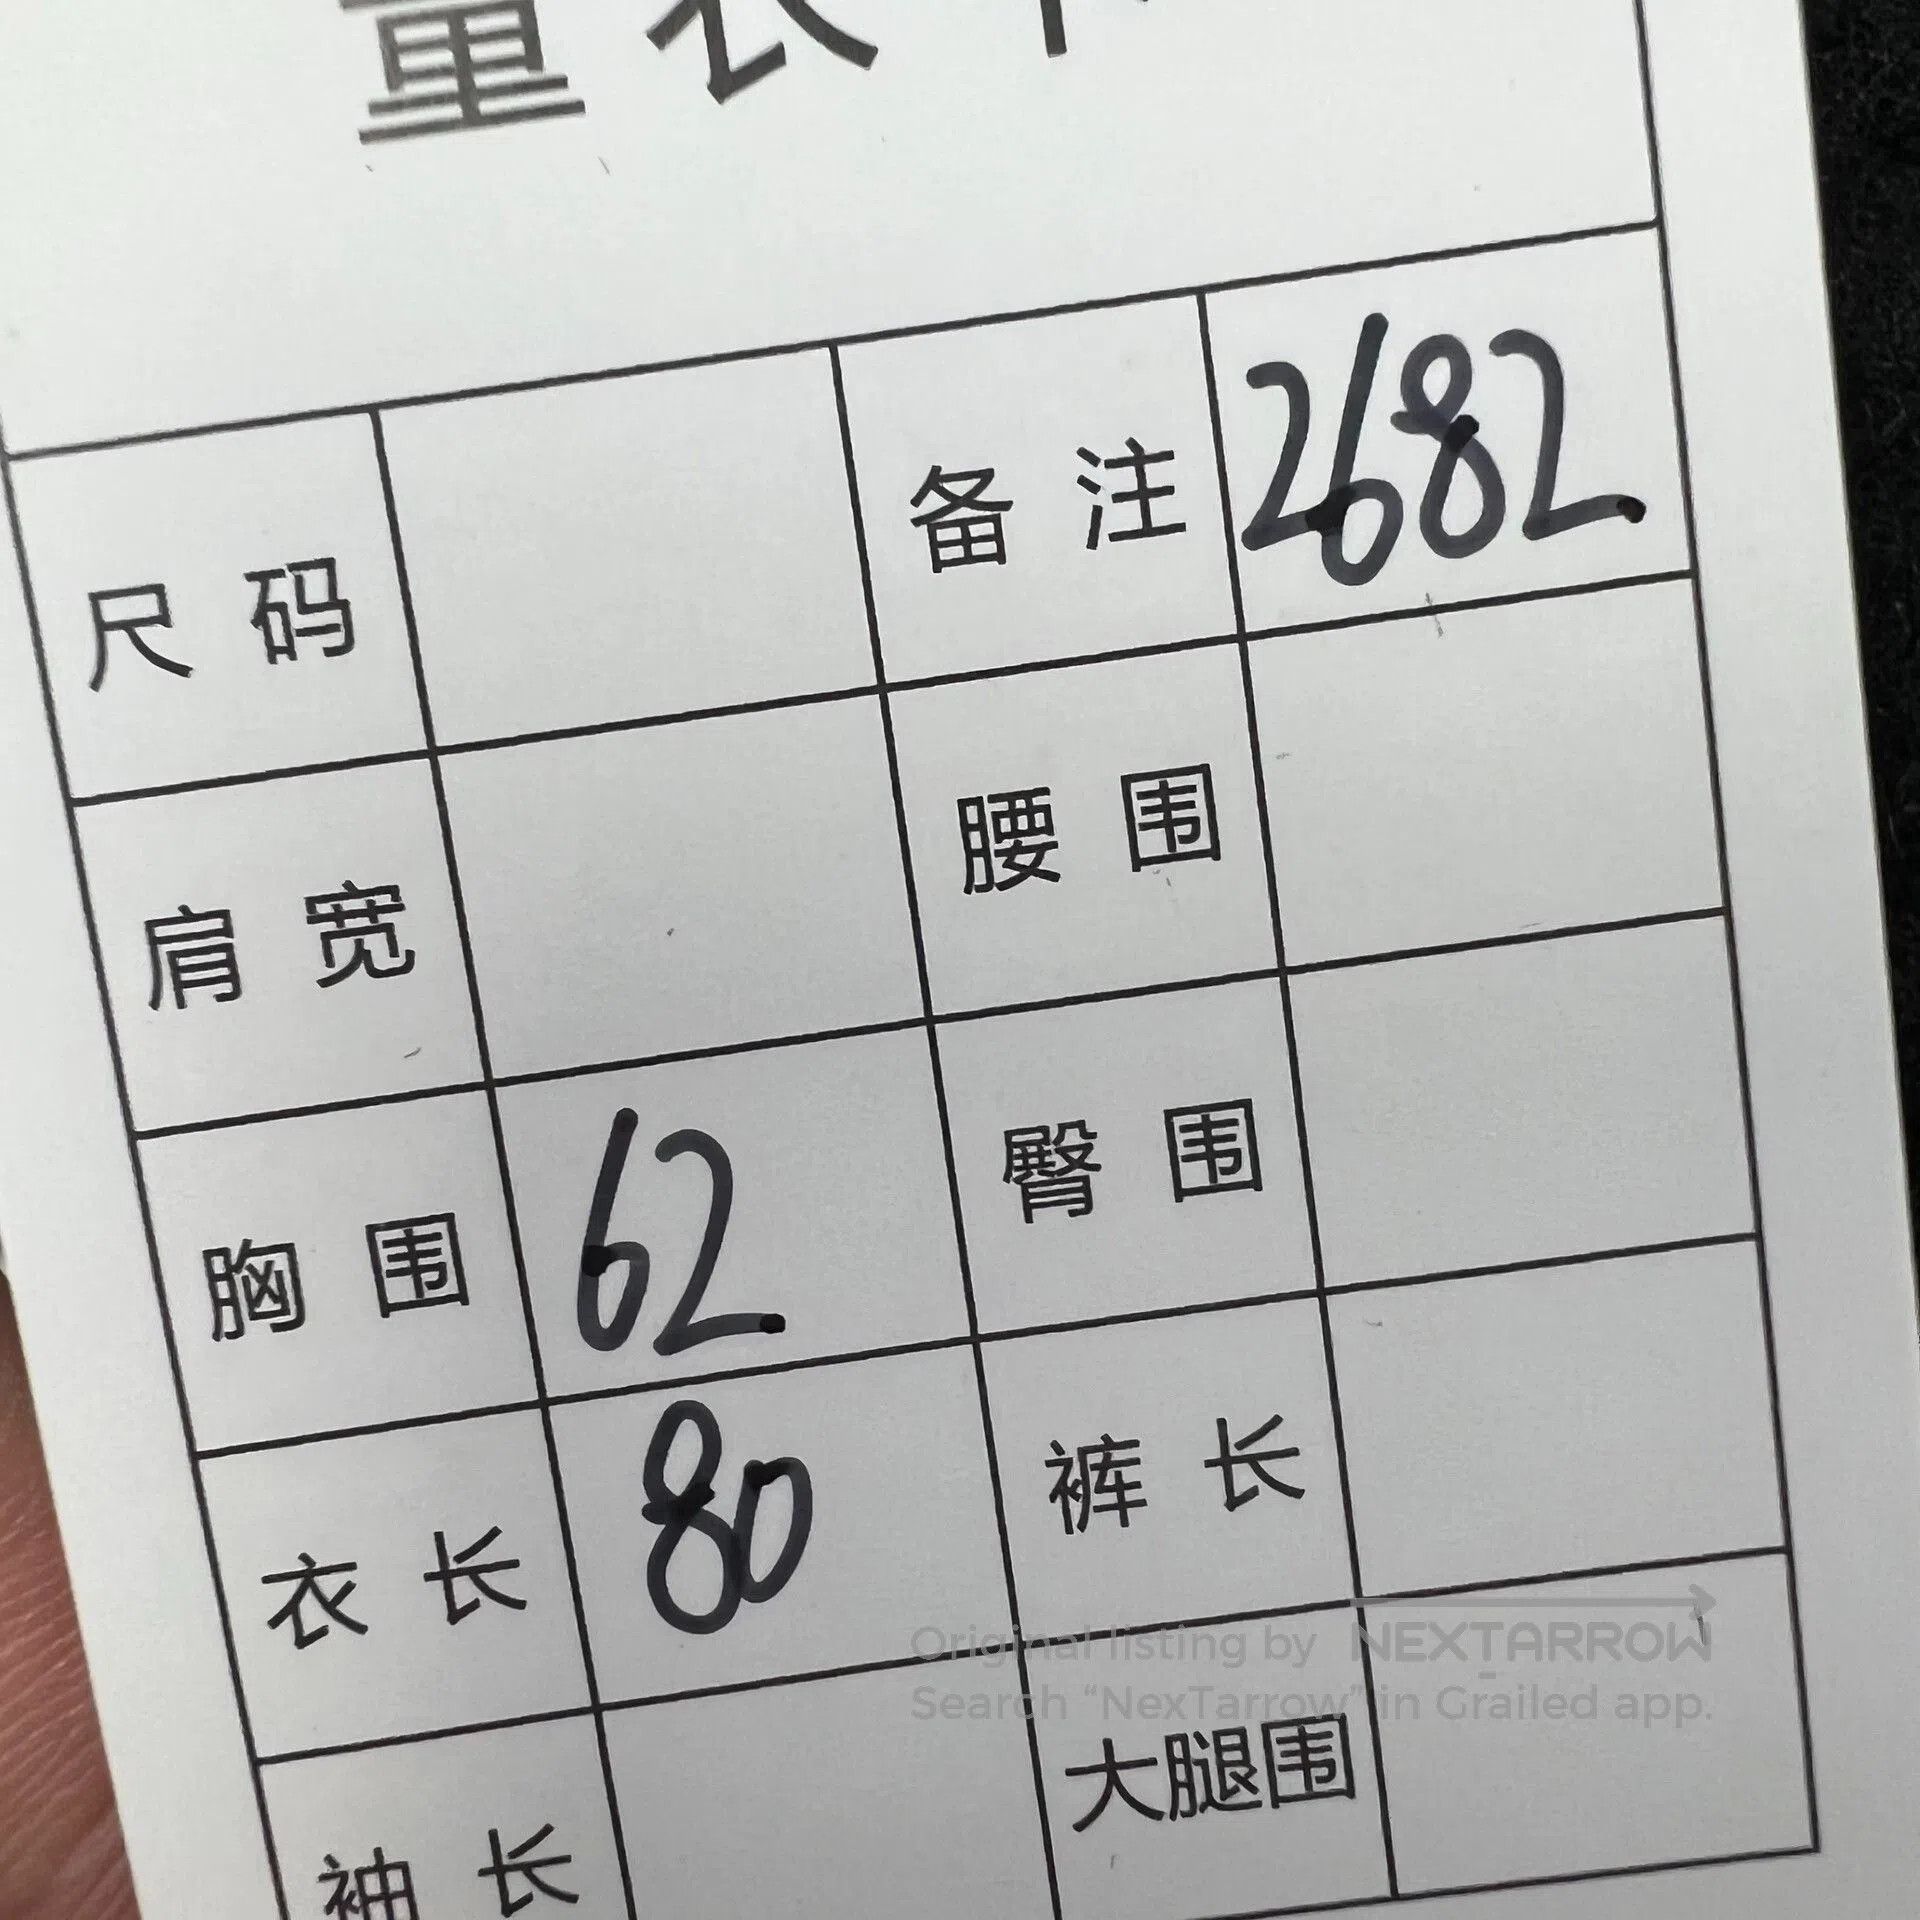 量衣卡
尺码 备注 2682
肩宽 腰围
胸围 62 臀围
衣长 80 裤长
Original listing by NEXTARROW
Search “NexTarrow” in Grailed app.
袖长 大腿围